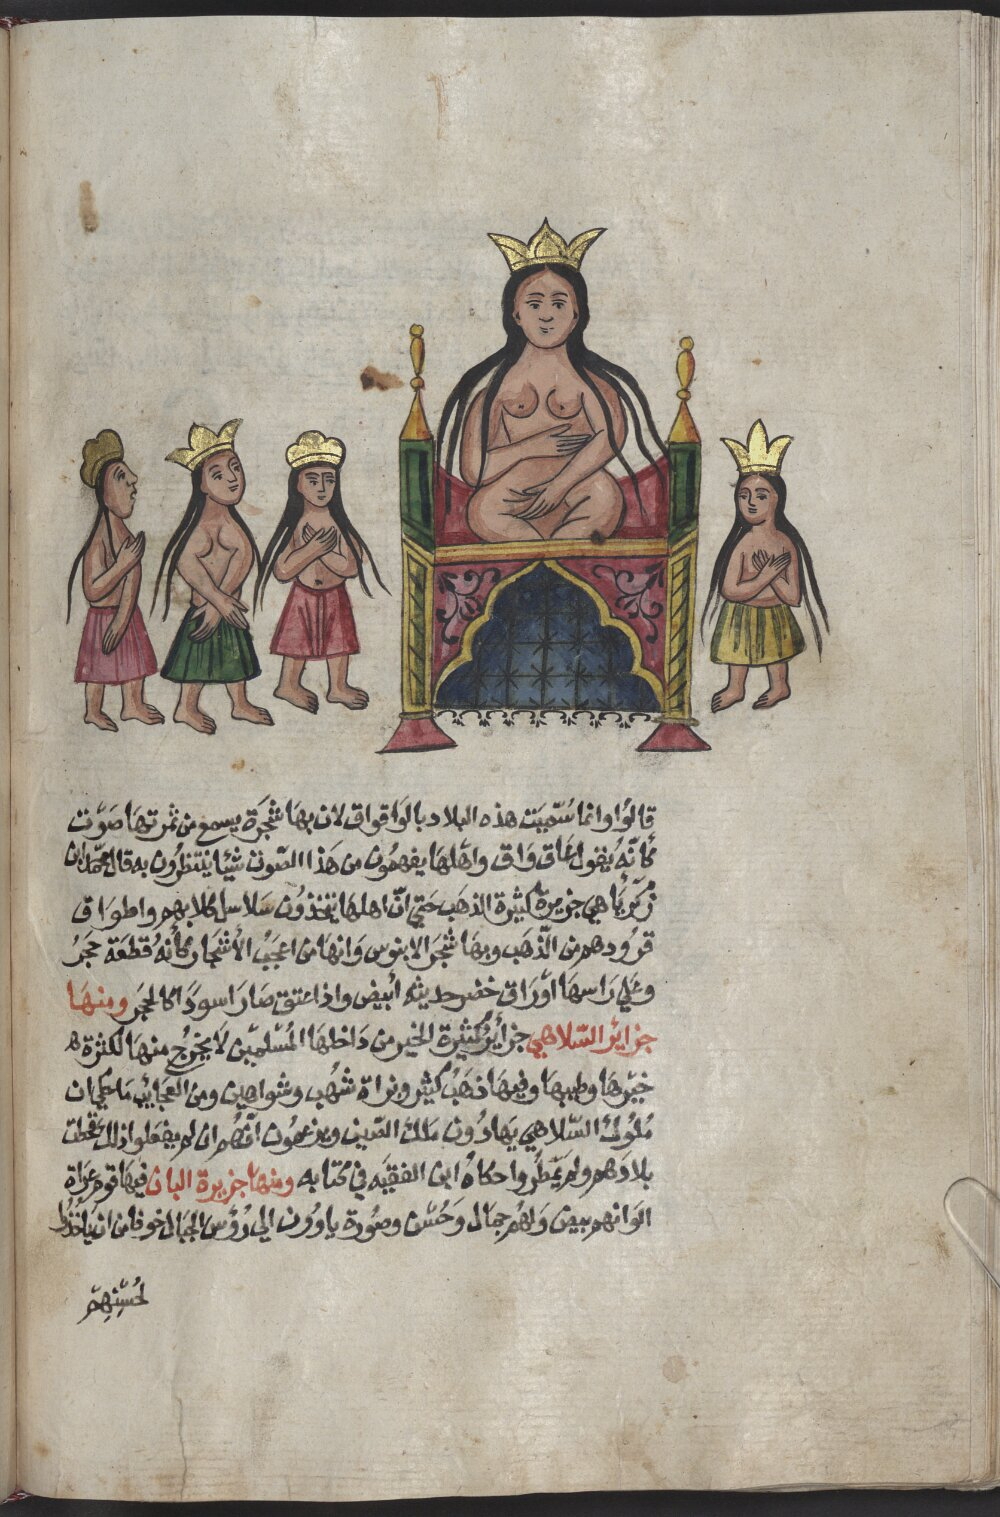 قالوا وانما سُمّيَت هذه البلاد بالوَاقواق لان بهَا شجَرَة يسمع من ثمرتهَا صَوْت
كأنّه يُقول وَاق وَاق واهلهَا يفهمُون من هَذا الصّوت شيًا ينتظرُون به قال محمّد ابن
زكَريَا هي جزيرة كثيرة الذهَب حَتي انّ اهلهَا يتخذوُن سَلاسل كلابهم واطوَاق
قرُودهم من الذّهَب وبهَا شجَر الابنوس وَانهَا من اعجَبْ الأشجَار كأنهُ قطعَة حجَرُ
وعَلي رَاسهَا اوْرَاق خضر حديثه أبيض واذا عتق صَارَ اسوَدًا كالحجَر ومنهَا
جزايْر السّلاهي جزأير كثيرة الخير من دَاخلهَا المُسْلميْن لا يخرُج منهَا لكثرة
خيْرهَا وطيبهَا وفيهَا ذهَبُ كثير وبزاة شهُب وشواهين ومن العجايْب مَا حكي ان
مُلوُك السّلاهي يهَادُون مَلك الصّين ويزعمُون انّهُم ان لم يفعَلوا ذلك قحطت
بلادَهم ولم يَمْطَرُوا حكاهُ ابن الفقيَه في كتابه ومنهَا جزيرة البان فيهَا قوم عرَاة
الوَانهم بيض وَلهُم جمَال وَحُسْن وصُورة ياوُون الي رُؤس الجبَال خوفا من ان يَأخذ
لحُسْنِهِمْ